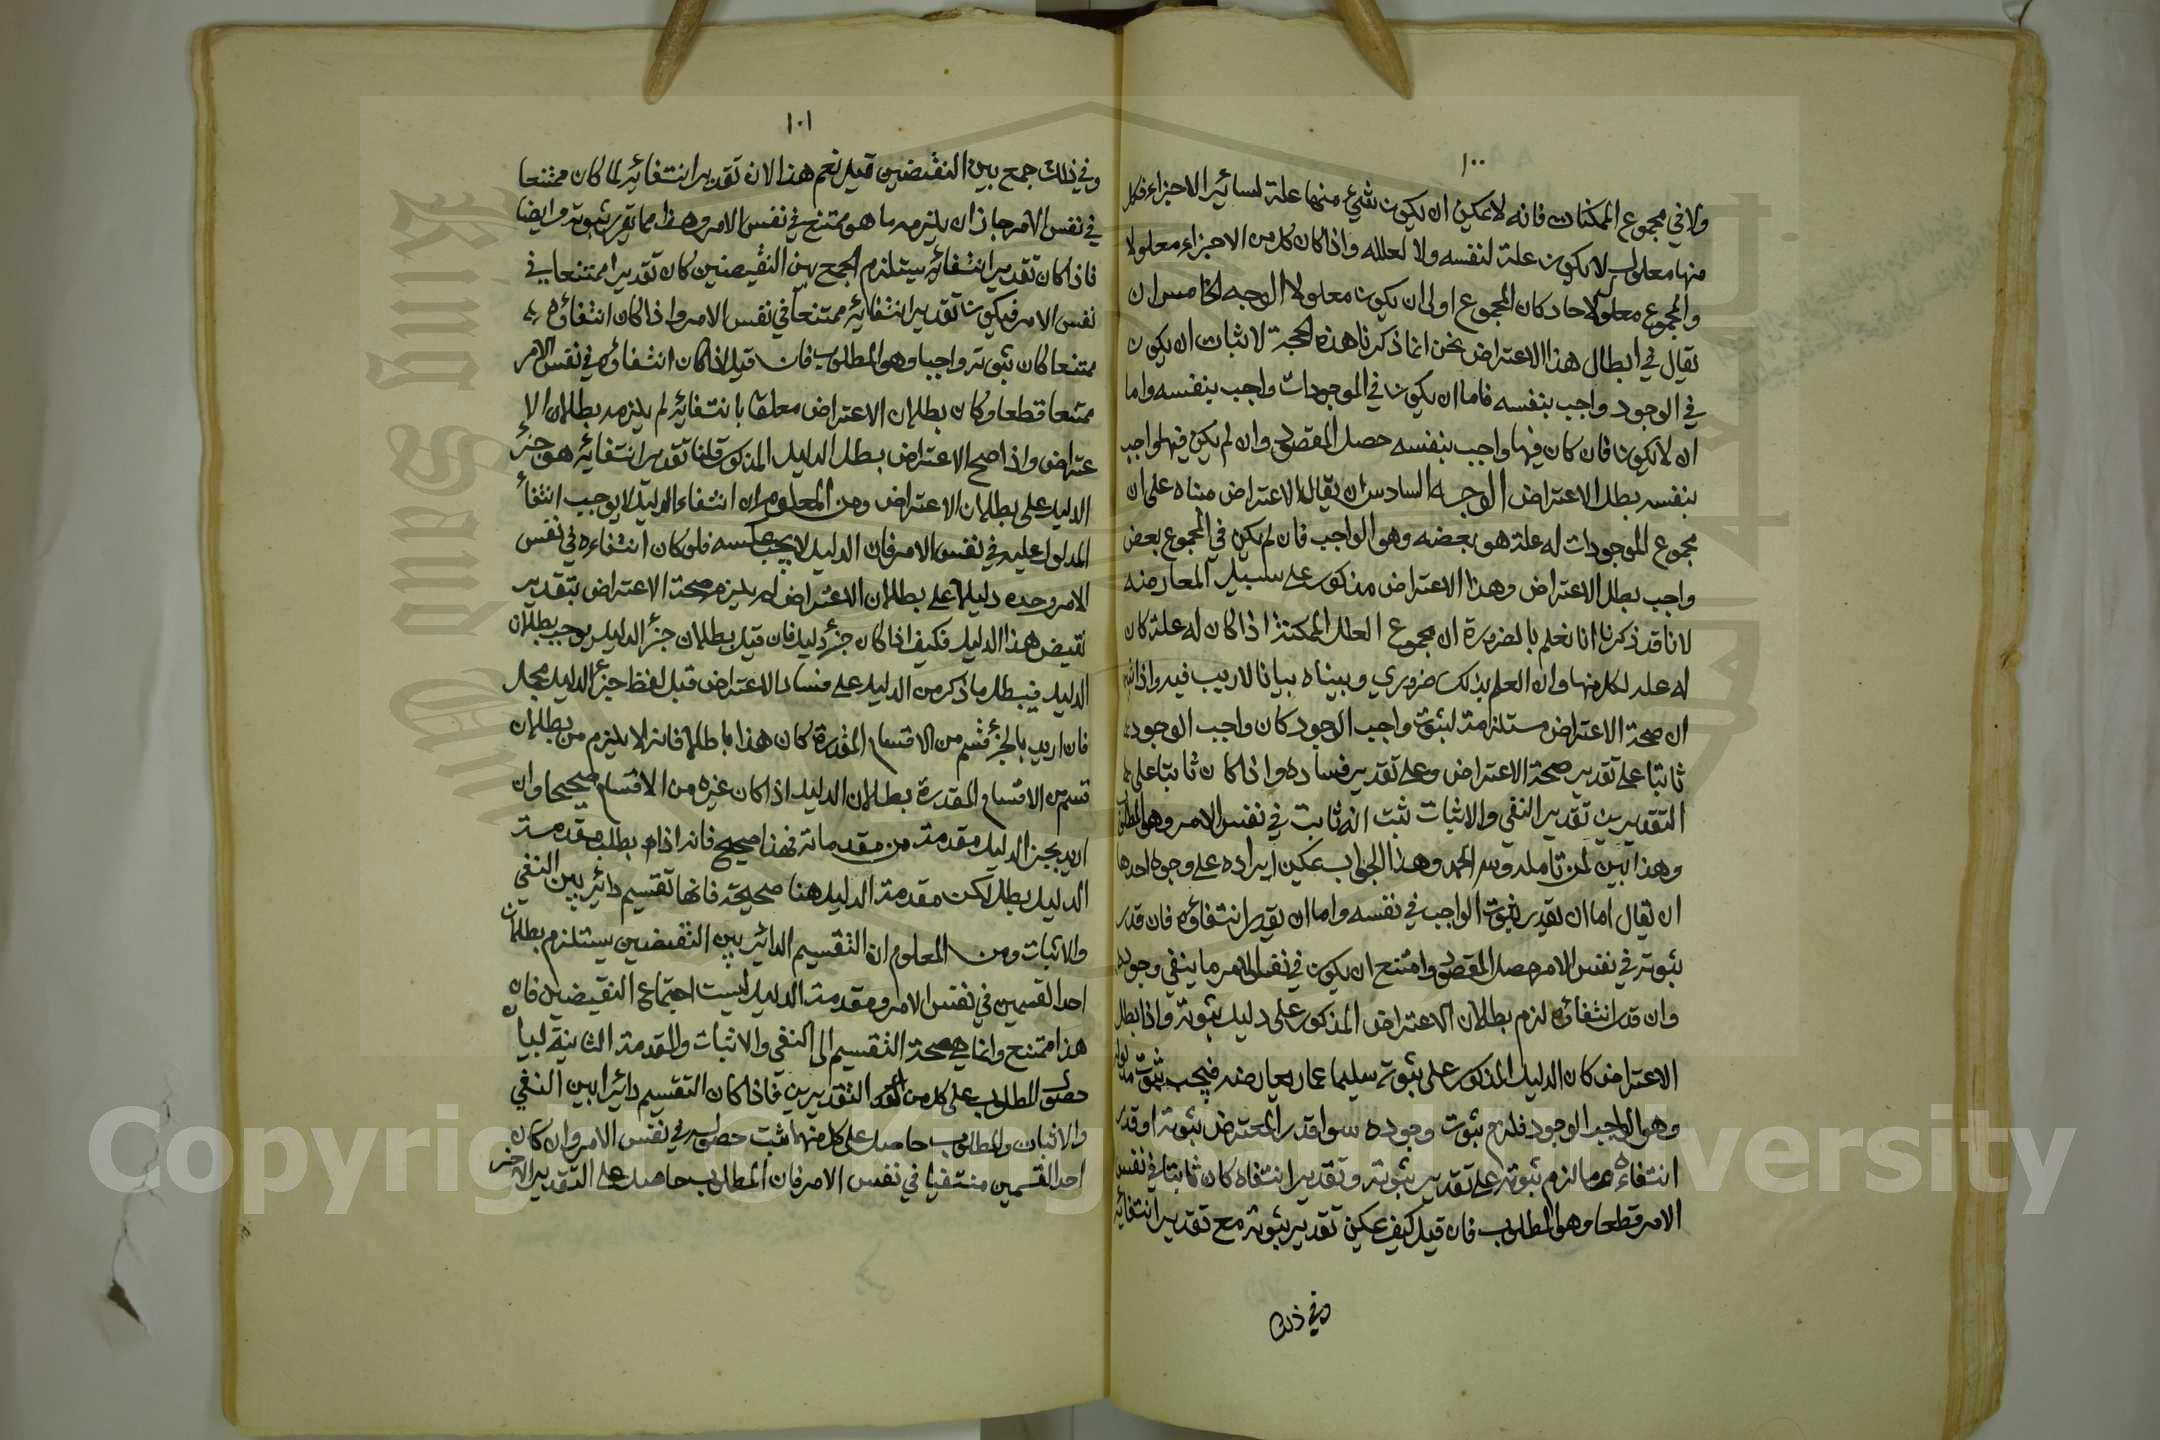 ١٠٠
ولا في مجموع الممكنات فانه لا يمكن ان يكون شيء منها علة لسائر الاجزاء فكل
منها معلول لا يكون علة لنفسه ولا لعلله واذا كان كل من الاجزاء معلولا
والمجموع معلول الآحاد كان المجموع اولى ان يكون معلولا الوجه الخامس ان
يقال في ابطال هذا الاعتراض نحن انما ذكرنا هذه الحجة لاثبات ان يكون
في الوجود واجب بنفسه فاما ان يكون في الموجودات واجب بنفسه واما
ان لا يكون فان كان فيها واجب بنفسه حصل المقصود وان لم يكن فيها واجب
بنفسه بطل الاعتراض الوجه السادس ان يقال الاعتراض مبناه على ان
مجموع الموجودات له علة هو بعضه وهو الواجب فان لم يكن في المجموع بعض
واجب بطل الاعتراض وهذا الاعتراض مذكور على سبيل المعارضه
لانا قد ذكرنا انا نعلم بالضرورة ان مجموع العلل الممكنة اذا كان له علة كان
له علة لكل منها وان العلم بذلك ضروري وبيناه بيانا لا ريب فيه واذا
ان صحة الاعتراض مستلزمة لثبوت واجب الوجود كان واجب الوجود
ثابتا على تقدير صحة الاعتراض وعلى تقدير فساده واذا كان ثابتا على
التقديرين تقدير النفي والاثبات ثبت انه ثابت في نفس الامر وهو المطلوب
وهذا بين لمن تامله ولله الحمد وهذا الجواب يمكن ايراده على وجوه احدها
ان يقال اما ان يقدر ثبوت الواجب في نفسه واما ان يقدر انتفاؤه فان قدر
ثبوته في نفس الامر حصل المقصود وامتنع ان يكون في نفس الامر ما ينفي وجوده
وان قدر انتفاؤه لزم بطلان الاعتراض المذكور على دليل ثبوته واذا بطل
الاعتراض كان الدليل المذكور على ثبوته سليما عما يعارضه فيجب ثبوت مدلوله
وهو الواجب الوجود فلزم ثبوت وجوده سوا قدر المعترض ثبوته او قدر
انتفاءه وما لزم ثبوته على تقدير ثبوته وتقدير انتفاه كان ثابتا في نفس
الامر قطعا وهو المطلوب فان قيل كيف يمكن تقدير ثبوته مع تقدير انتفائه
وفي ذلك
١٠١
وفي ذلك جمع بين النقيضين قيل نعم هذا لان تقدير انتفائه لما كان ممتنعا
في نفس الامر جاز ان يلزمه ما هو ممتنع في نفس الامر وهذا مما يقرر ثبوته وايضا
فاذا كان تقدير انتفائه يستلزم الجمع بين النقيضين كان تقديرا ممتنعا في
نفس الامر فيكون تقدير انتفائه ممتنعا في نفس الامر واذا كان انتفاؤه
ممتنعا كان ثبوته واجبا وهو المطلوب فان قيل اذا كان انتفاؤه في نفس الامر
ممتنعا قطعا وكان بطلان الاعتراض معلقا بانتفائه لم يلزمه بطلان الا
عتراض واذا صح الاعتراض بطل الدليل المذكور قلنا تقدير انتفائه هو جزء
الدليل على بطلان الاعتراض ومن المعلوم ان انتفاء الدليل لا يوجب انتفاء
المدلول عليه في نفس الامر فان الدليل لا يجب عكسه فلو كان انتفاءه في نفس
الامر وحده دليلا على بطلان الاعتراض لم يلزم صحة الاعتراض بتقدير
نقيض هذا الدليل فكيف اذا كان جزء دليل فان قيل بطلان جزء الدليل يوجب بطلان
الدليل فيبطل ما ذكر من الدليل على فساد الاعتراض قيل لفظ جزء الدليل مجمل
فان اريد بالجزء قسم من الاقسام المقدرة كان هذا باطلا فانه لا يلزم من بطلان
قسم من الاقسام المقدرة بطلان الدليل اذا كان غيره من الاقسام صحيحا وان
اريد بجزء الدليل مقدمة من مقدماته فهذا صحيح فانه اذا بطلت مقدمة
الدليل بطل لكن مقدمة الدليل هنا صحيحة فانها تقسيم دائر بين النفي
والاثبات ومن المعلوم ان التقسيم الدائر بين النقيضين يستلزم بطلان
احد القسمين في نفس الامر ومقدمة الدليل ليست اجتماع النقيضين فان
هذا ممتنع وانما هي صحة التقسيم الى النفي والاثبات والمقدمة الثانية لبيان
حصول المطلوب على كل من التقديرين فاذا كان التقسيم دائرا بين النفي
والاثبات والمطلوب حاصل على كل منهما ثبت حصوله في نفس الامر وان كان
احد القسمين منتفيا في نفس الامر فان المطلوب حاصل على التقدير الاخر
Copyright © King Saud University
King Saud University